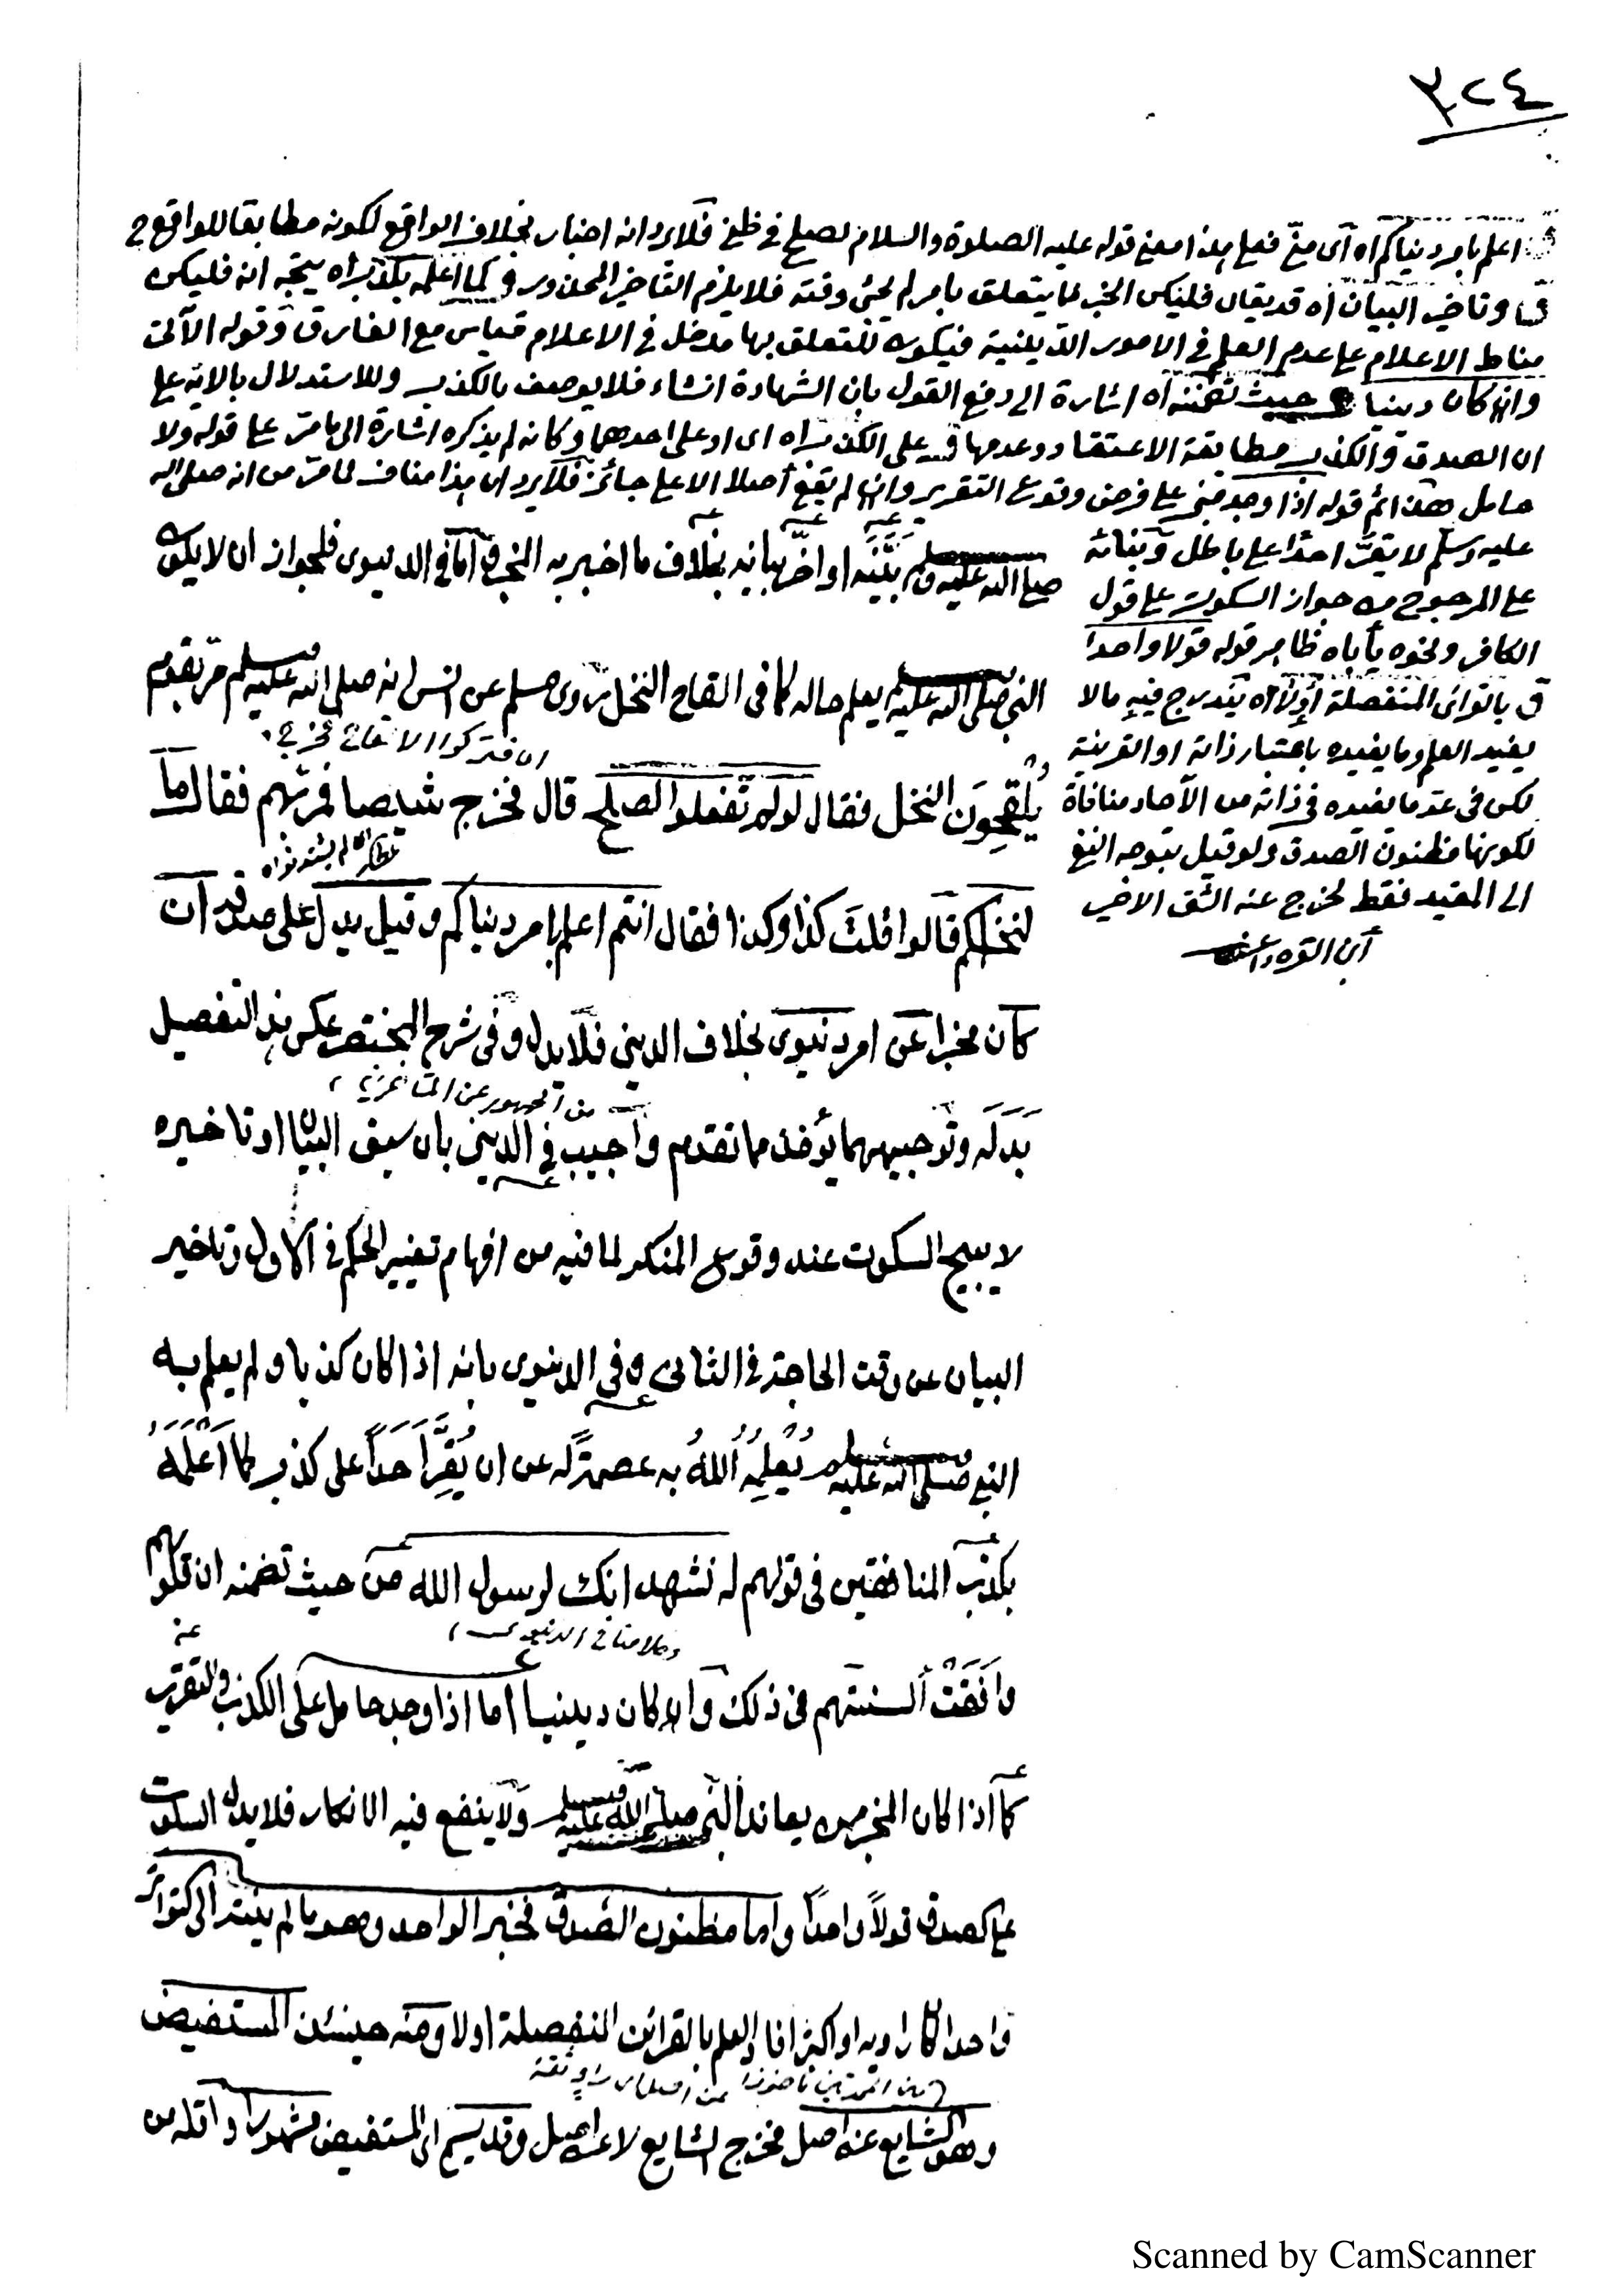 ٣٢٤
اعلم بامر دنياكم اه اى منى فعلى هذا معنى قوله عليه الصلوة والسلام لصلح فى ظنى فلا يرد انه اخبار بخلاف الواقع لكونه مطابقا للواقع
وتاخير البيان اه قد يقال فليكن الخبر لما يتعلق بامر لم يجئ وقته فلا يلزم التاخير المحذور كما اعلمه بكذب اه يتجه انه فليكن
مناط الاعلام على عدم العلم فى الامور الدينية فيكون للتعلق بها مدخل فى الاعلام قياس مع الفارق وقوله الآتى
وان كان دينيا حيث تضمنه اه اشارة الى دفع القول بان الشهادة انشاء فلا يوصف بالكذب وللاستدلال بالاية على
ان الصدق والكذب مطابقة الاعتقاد وعدمها على الكذب اه اى او على احدهما وكانه لم يذكره اشارة الى مامر على قوله ولا
حامل هذا ثم قوله اذا وجد مبنى على فرض وقوع التقرير وان لم يقع اصلا الا على جائز فلا يرد ان هذا مناف لما مر من انه صلى الله
عليه وسلم لا يقر احدا على باطل وبنائه
على المرجوح من جواز السكوت على قول
الكافر ونحوه يأباه ظاهر قوله قولا واحدا
بالقرائن المنفصلة اولا اه يندرج فيه مالا
يفيد العلم وما يفيده باعتبار ذاته او القرينة
لكن فى عد ما يفيده فى ذاته من الآحاد منافاة
لكونها مظنون الصدق ولو قيل بتوجه النفى
الى المقيد فقط لخرج عنه الشق الاخير
ابن القره داغى
صلى الله عليه وسلم بَيَّنَه او اخّر بيانه بخلاف ما اخبر به المخبر اما فى الدنيوى فلجواز ان لا يكون
النبى صلى الله عليه وسلم يعلم حاله كما فى القاح النخل روى مسلم عن انس انه صلى الله عليه وسلم مر بقوم
يُلقِحُونَ النخل فقال لو لم تفعلوا لصلح قال فخرج شيصا فمر بهم فقال ما
لنخلكم قالوا قلت كذا وكذا فقال انتم اعلم بامر دنياكم وقيل يدل على صدقه ان
كان مخبرا عن امر دنيوى بخلاف الدينى فلا يدل وفى شرح المختصر عكس هذا التفصيل
بَدَلَه وتوجيههما يؤخذ مما تقدم واجيب فى الدينى بان سبق البيان او تاخيره
لا يبيح السكوت عند وقوع المنكر لما فيه من افهام تغيير الحكم فى الاول وتاخير
البيان عن وقت الحاجة فى الثانى وفى الدنيوى بانه اذا كان كذبا ولم يعلم به
النبى صلى الله عليه وسلم يُعْلِمُه اللهُ به عصمةً له عن ان يُقِرَّ اَحَدًا على كذب كما اَعْلَمَهُ
بكذب المنافقين فى قولهم له نشهد انك لرسول الله من حيث تضمنه ان قلوبهم
وافَقَتْ ألسنتهم فى ذلك وان كان دينيا اما اذا وجد حامل على الكذب والتقرير
كما اذا كان المخبر ممن يعاند النبى صلى الله عليه وسلم ولا ينفع فيه الانكار فلا يدل السكوت
على الصدق قولاً واحداً واما مظنون الصدق فخبر الواحد وهو ما لم ينته الى التواتر
واحدا كان راويه او اكثر افاد العلم بالقرائن المنفصلة اولا ومنه حينئذ المستفيض
وهو الشايع عن اصل فخرج الشايع لا عن اصل وقد يسمى اى المستفيض مشهورا واقله من